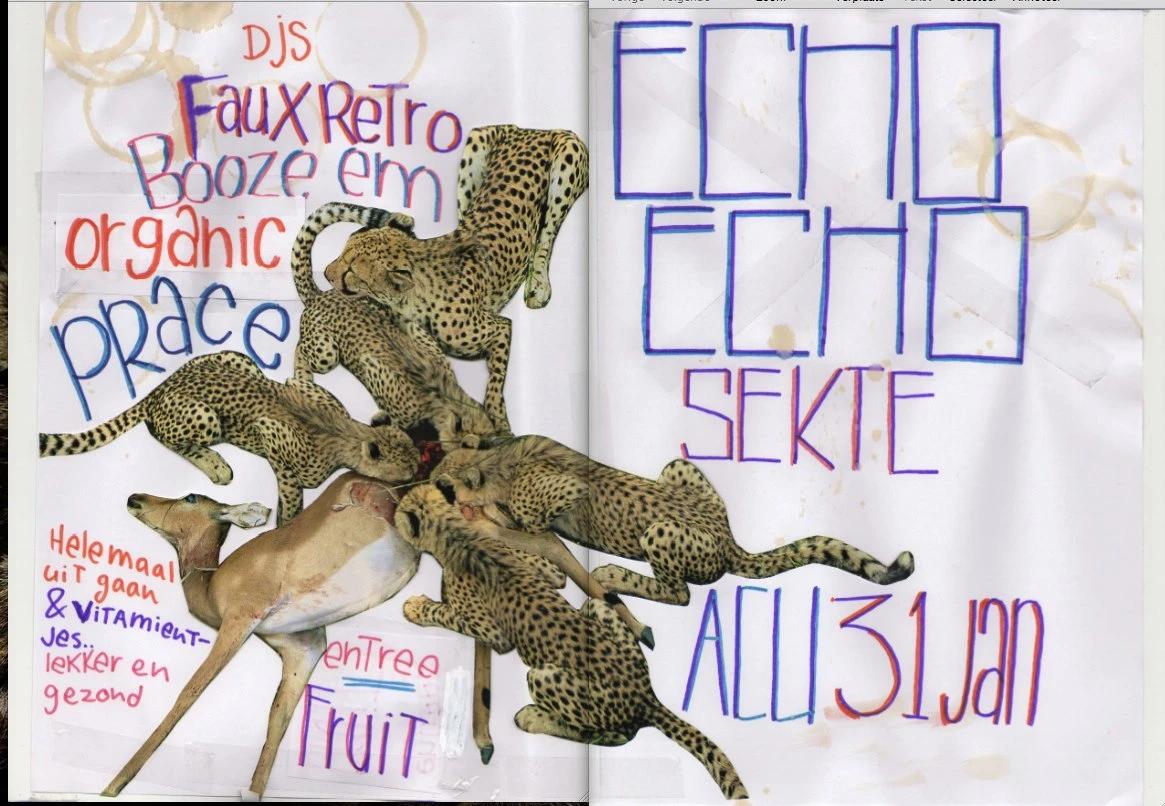 DJS
Faux Retro
Booze em
organic
PRace
Helemaal
uit gaan
& VITAmient-
Jes..
lekker en
gezond
enTree
FruiT
ECHO
ECHO
SEKTE
ACU 31 Jan